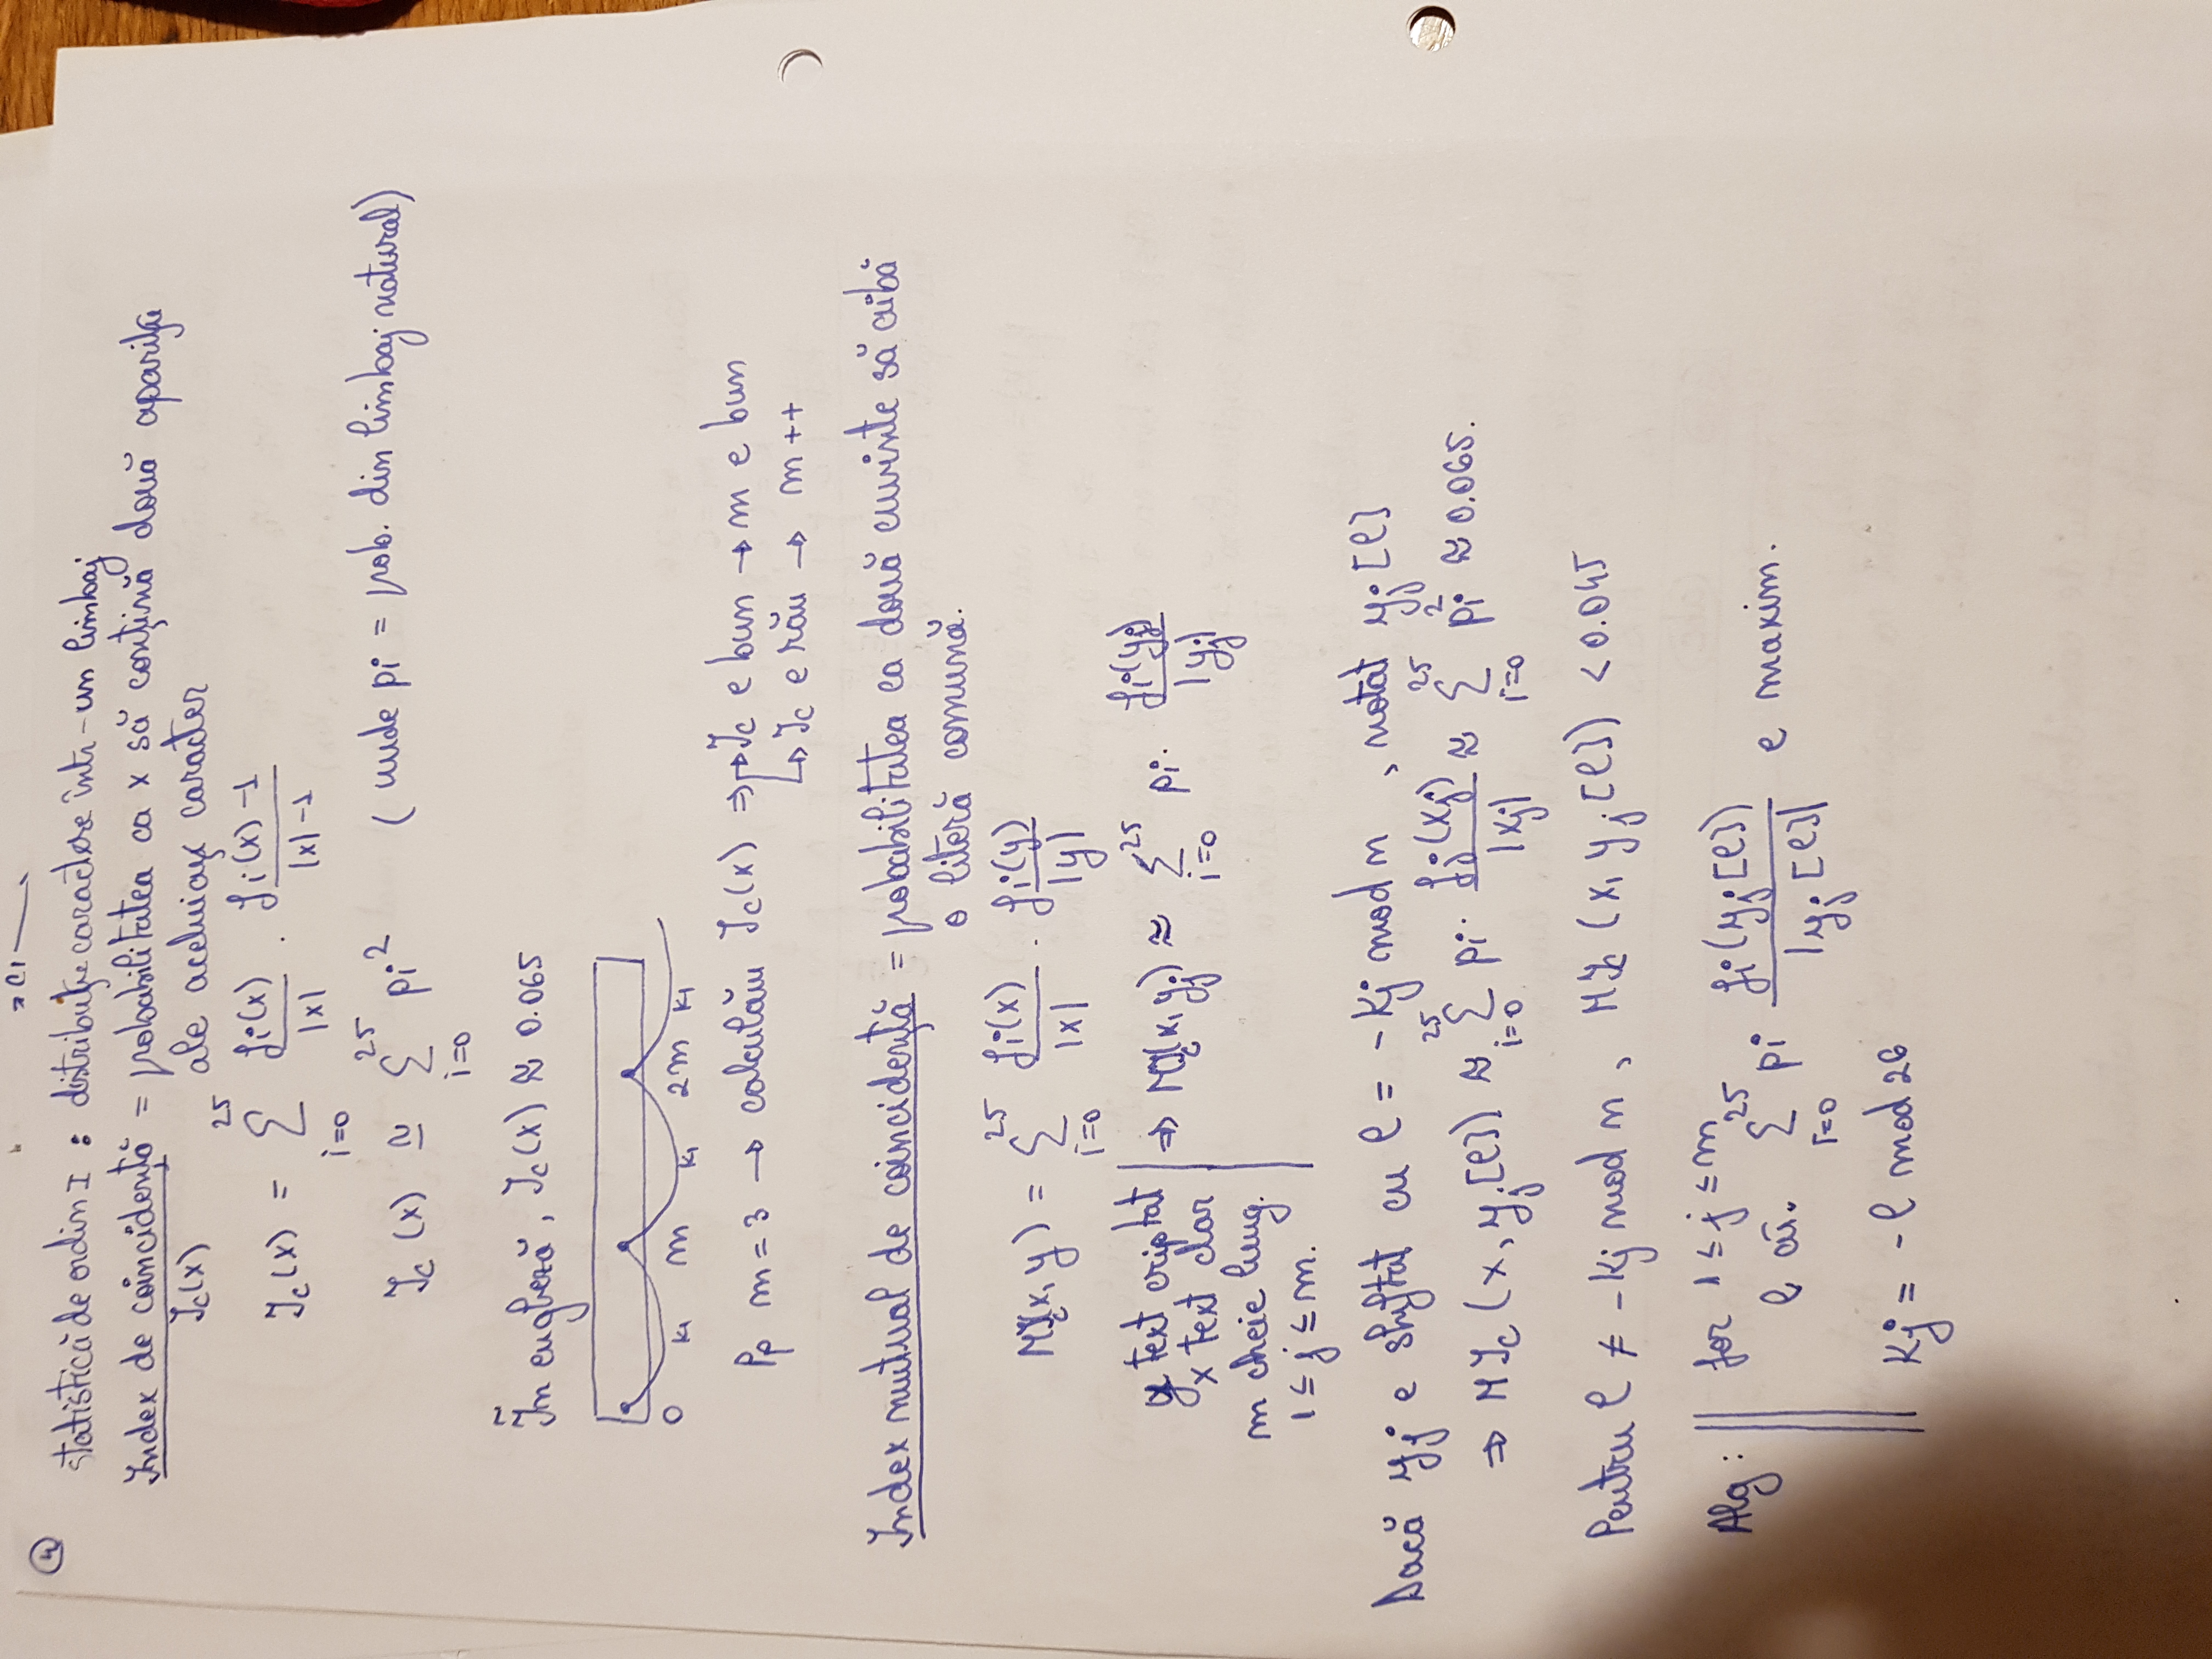 ④
statistică de ordin I : distribuție caractere într-un limbaj
Index de coincidență = probabilitatea ca x să conțină două apariții
Ic(x) ale aceluiași caracter
Ic(x) = ∑_{i=0}^{25} fi(x)/|x| · fi(x)-1/|x|-1
Ic(x) ≃ ∑_{i=0}^{25} pi² (unde pi = prob. din limbaj natural)
În engleză, Ic(x) ≈ 0.065
0 k1 m k1 2m k1
Pp m = 3 → calculăm Ic(x) ⇒ → Ic e bun → m e bun
↳ Ic e rău → m++
Index mutual de coincidență = probabilitatea ca două cuvinte să aibă
o literă comună.
MIc(x, y) = ∑_{i=0}^{25} fi(x)/|x| · fi(y)/|y|
y text criptat ⇒ MIc(x, yj) ≈ ∑_{i=0}^{25} pi · fi(yj)/|yj|
x text clar
m cheie lung.
1 ≤ j ≤ m.
Dacă yj e shiftat cu l = -Kj mod n , notat yj[l]
⇒ MIc(x, yj[l]) ≈ ∑_{i=0}^{25} pi · fj(xj)/|xj| ≈ ∑_{i=0}^{25} pi² ≈ 0.065.
Pentru l ≠ -Kj mod n , MIc (x, yj[l]) < 0.045
Alg : for 1 ≤ j ≤ m
l aî. ∑_{i=0}^{25} pi fi(yj[l])/|yj[l]| e maxim.
Kj = -l mod 26